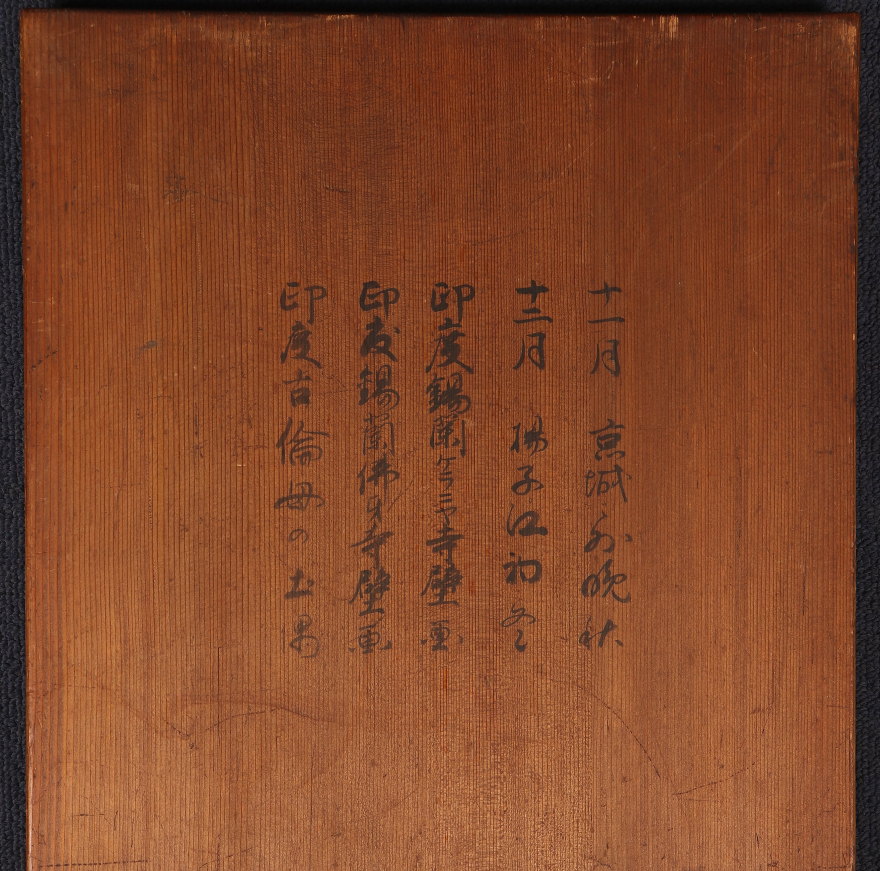 十一月　京城外晩秋
十二月　揚子江初冬
印度錫蘭ケラニヤ寺壁画
印度錫蘭佛牙寺壁画
印度古倫母の